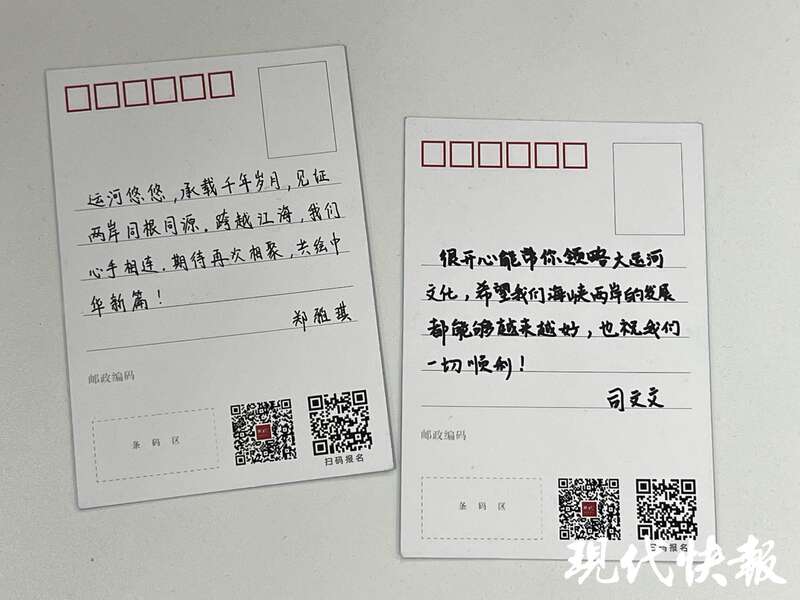 运河悠悠，承载千年岁月，见证
两岸同根同源。跨越江海，我们
心手相连。期待再次相聚，共绘中
华新篇！
郑雅琪
邮政编码
条码区
扫码报名
很开心能带你领略大运河
文化，希望我们海峡两岸的发展
都能够越来越好，也祝我们
一切顺利！
司文文
邮政编码
条码区
扫码报名
现代快報